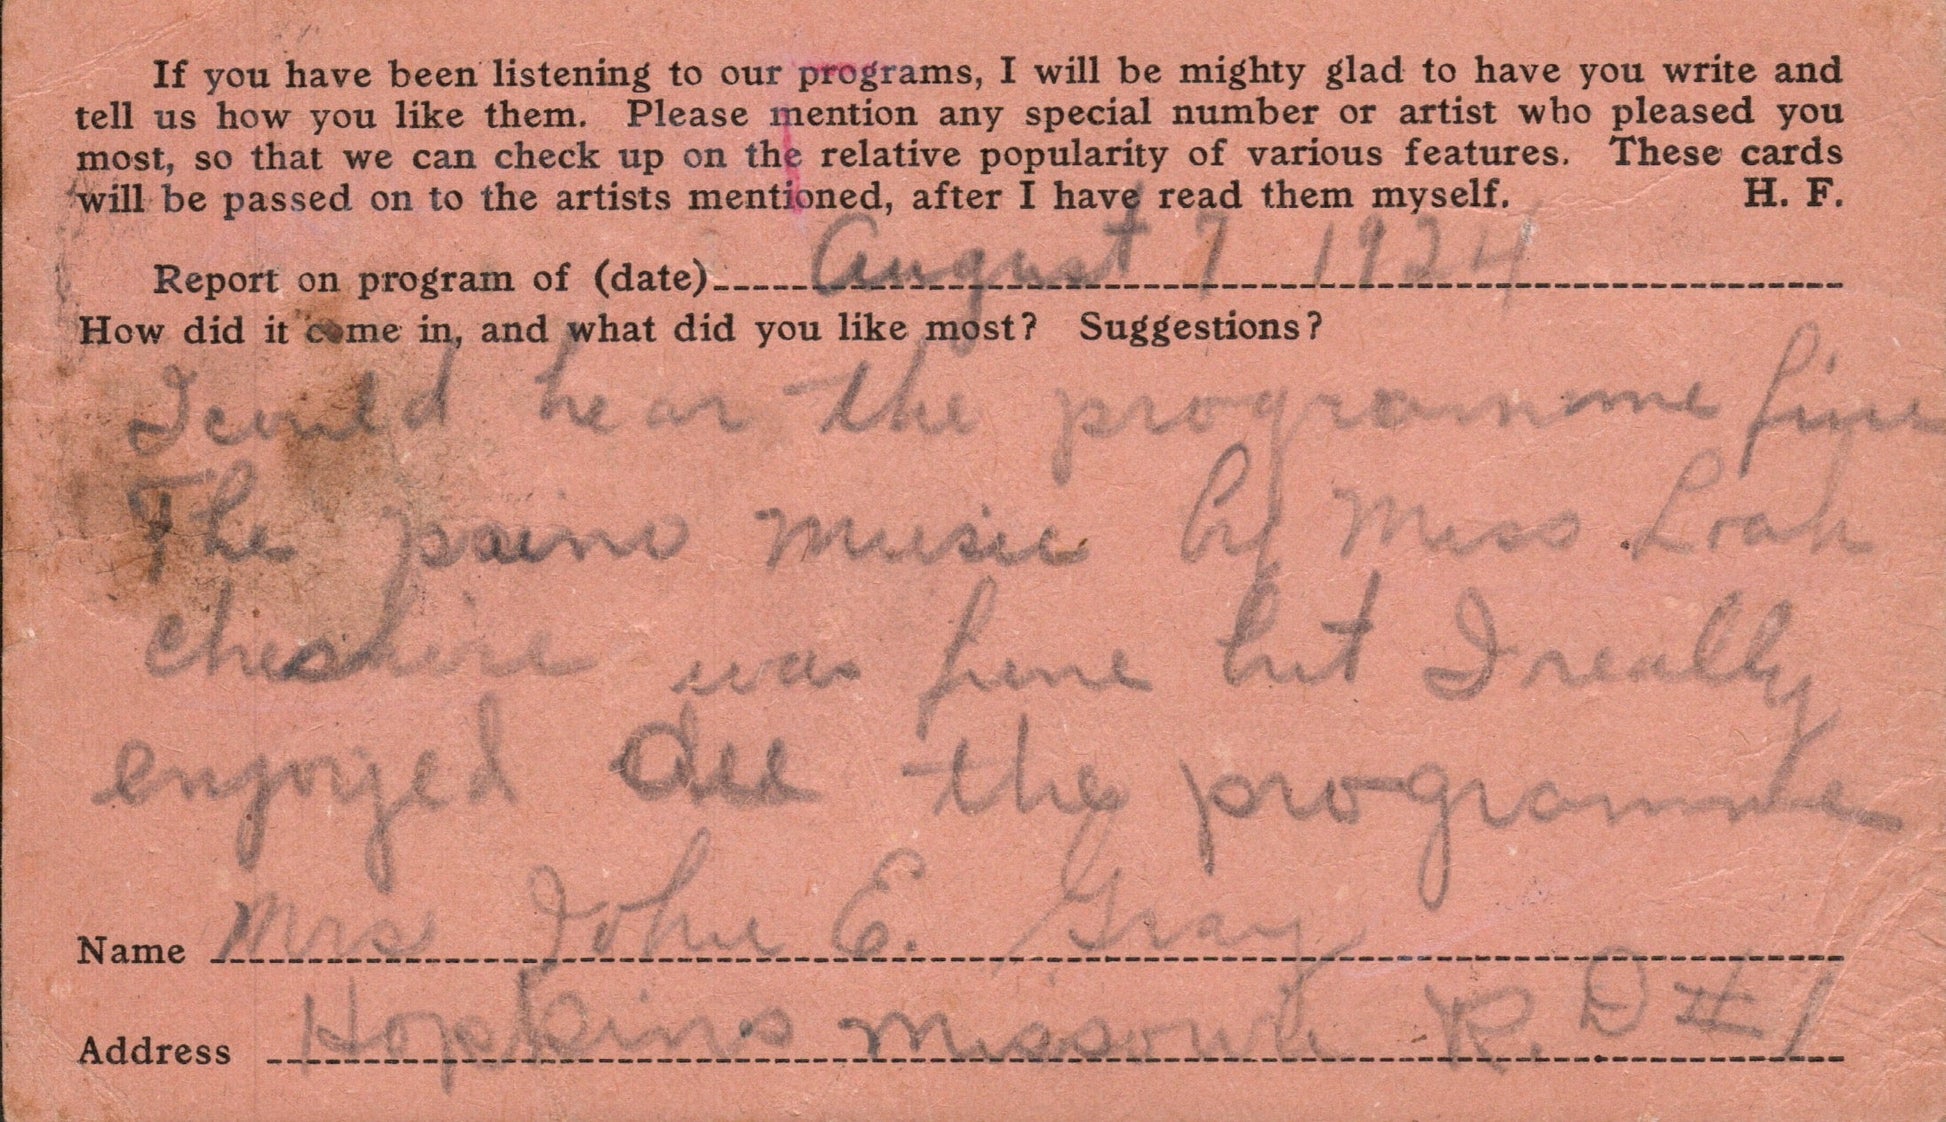 If you have been listening to our programs, I will be mighty glad to have you write and
tell us how you like them. Please mention any special number or artist who pleased you
most, so that we can check up on the relative popularity of various features. These cards
will be passed on to the artists mentioned, after I have read them myself. H. F.
Report on program of (date) August 7 1924
How did it come in, and what did you like most? Suggestions?
I could hear the programme fine
The paino music by Miss Loah
cheshire was fine but I really
enjoyed all the programme
Name Mrs John E. Gray
Address Hopkins Missouri R. D #1